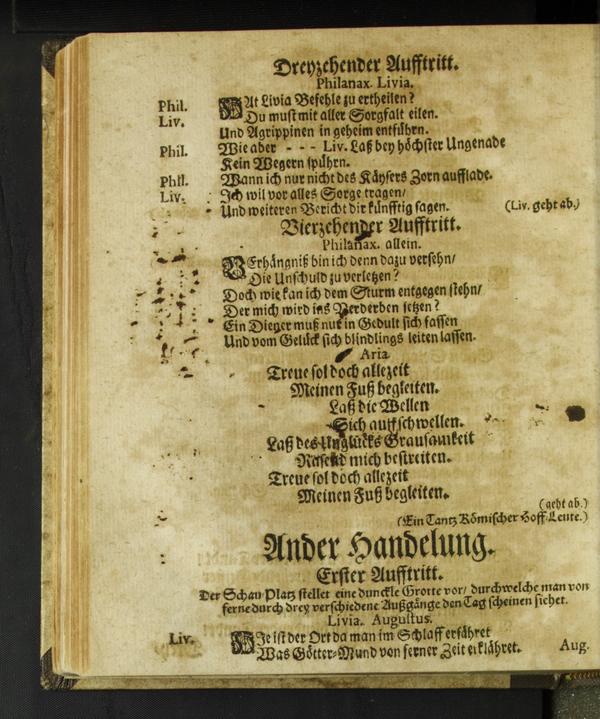 Dreyzehender Aufftritt.
Philanax. Livia.
Phil. HAt Livia Befehle zu ertheilen?
Liv. Du must mit aller Sorgfalt eilen.
Und Agrippinen in geheim entführn.
Phil. Wie aber - - - Liv. Laß bey höchster Ungenade
Kein Wegern spührn.
Phil. Wann ich nur nicht des Käysers Zorn aufflade.
Liv. Ich wil vor alles Sorge tragen/
Und weiteren Bericht dir künfftig sagen. (Liv. geht ab.)
Vierzehender Aufftritt.
Philanax. allein.
VErhängniß bin ich denn dazu versehn/
Die Unschuld zu verletzen?
Doch wie kan ich dem Sturm entgegen stehn/
Der mich wird ins Verderben setzen?
Ein Diener muß nur in Gedult sich fassen
Und vom Gelück sich blindlings leiten lassen.
Aria
Treue sol doch allezeit
Meinen Fuß begleiten.
Laß die Wellen
Sich auffschwellen.
Laß des Unglücks Grausamkeit
Rasend mich bestreiten.
Treue sol doch allezeit
Meinen Fuß begleiten.
(geht ab.)
(Ein Tantz Römischer Hoff-Leute.)
Ander Handelung.
Erster Aufftritt.
Der Schau Platz stellet eine dunckle Grotte vor/ durch welche man von
ferne durch drey verschiedene Außgänge den Tag scheinen siehet.
Livia. Augustus.
Liv. HIe ist der Ort da man im Schlaff erfähret
Was Götter-Mund von ferner Zeit erklähret.
Aug.